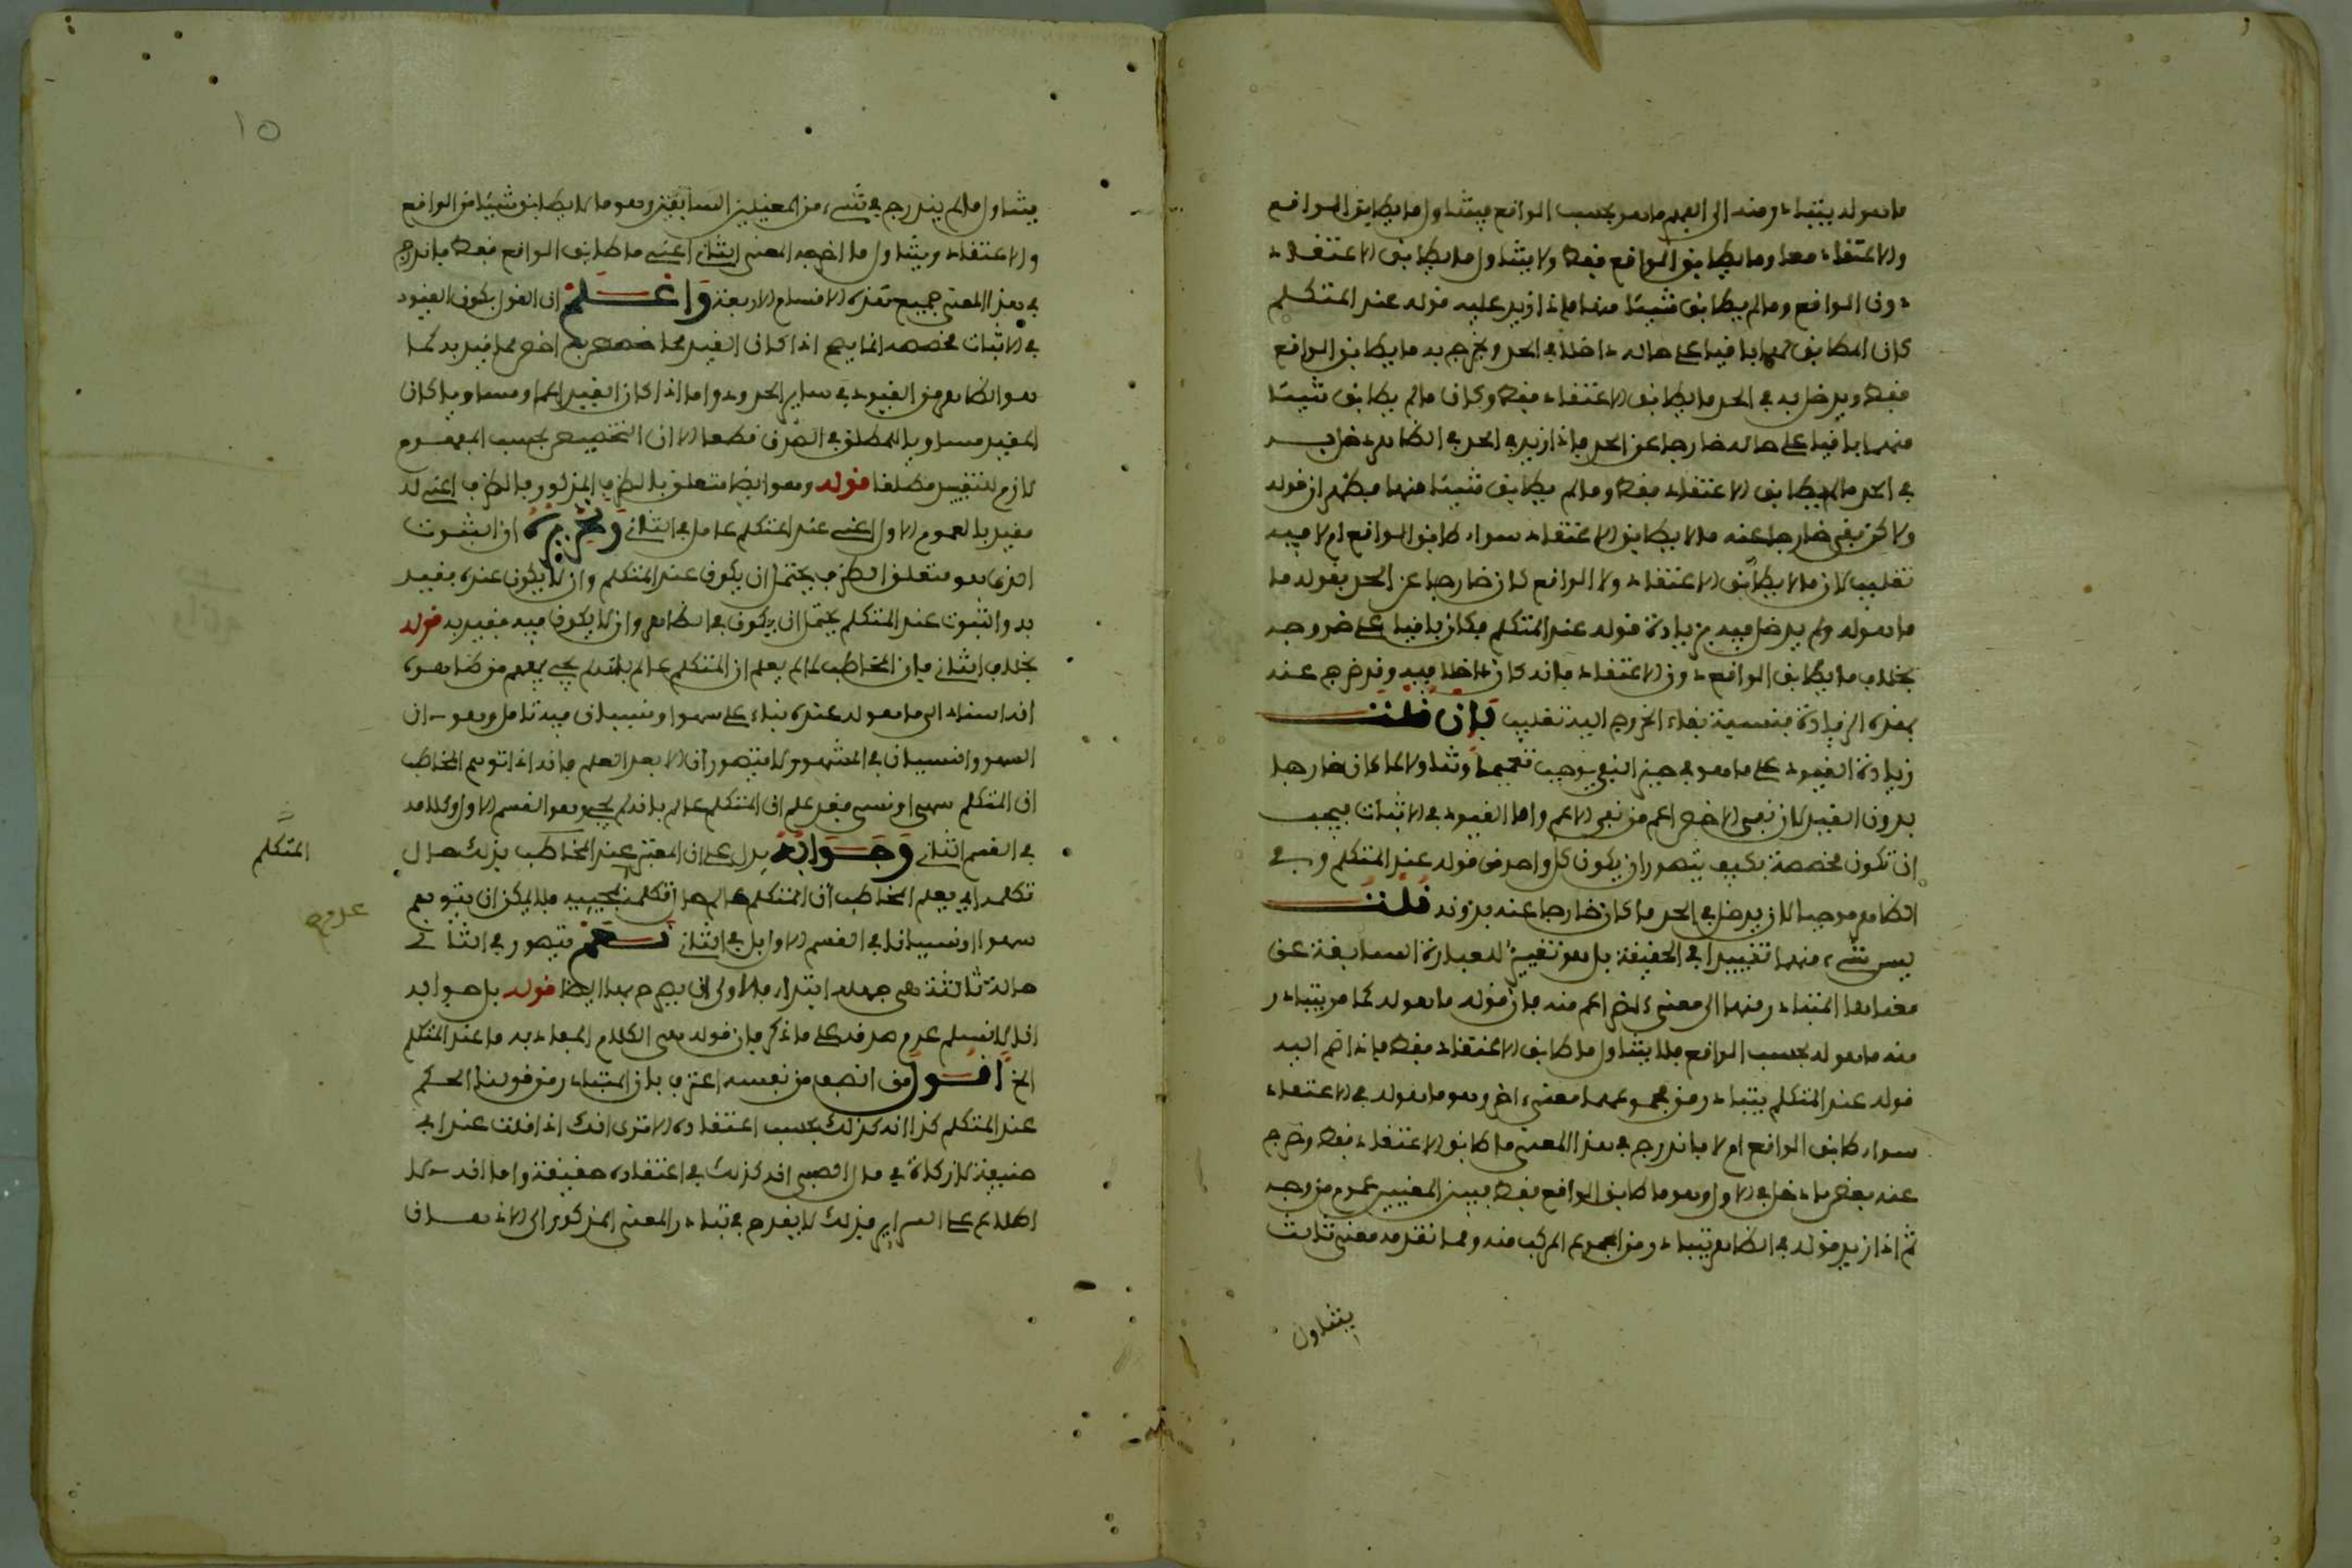 ما هو له يتبادر منه الى الفهم ما هو بحسب الواقع فيتناول ما يطابق الواقع
والاعتقاد معا وما يطابق الواقع فقط ولا يتناول ما يطابق الاعتقاد
دون الواقع وما لم يطابق شيئا منهما فاذا زيد عليه قوله عند المتكلم
كان المطابق لهما باقيا على حاله داخلا في الحد ويخرج به ما يطابق الواقع
فقط ويدخل به في الحد ما يطابق الاعتقاد فقط وكان ما لم يطابق شيئا
منهما باقيا على حاله خارجا عن الحد فاذا زيد في الحد في الظاهر دخل به
في الحد ما لم يطابق الاعتقاد فقط وما لم يطابق شيئا منهما فيظهر ان قوله
ولاكن بقي خارجا عنه ما لا يطابق الاعتقاد سواء طابق الواقع ام لا فيه
تغليب لان ما لا يطابق الاعتقاد ولا الواقع كان خارجا عن الحد بقوله ما
ما هو له ولم يدخل فيه بزيادة قوله عند المتكلم فكان باقيا على خروجه
بخلاف ما يطابق الواقع دون الاعتقاد فانه كان داخلا فيه وقد خرج عنه
بهذه الزيادة فنسبة بقاء الخروج اليه تغليب فان قلت
زيادة القيود على ما هو في حيز النفي يوجب تعميما وتناولا لما كان خارجا
بدون القيد لان نفي الاخص اعم من نفي الاعم واما القيود في الاثبات فيجب
ان تكون مخصصة فكيف يتصور ان يكون كل واحد من قوله عند المتكلم وفي
الظاهر موجبا لان يدخل في الحد ما كان خارجا عنه بدونه قلت
ليس شيء منهما تقييدا في الحقيقة بل هو تغيير للعبارة السابقة عن
معناها المتبادر منها الى معنى اخر اعم منه فان قوله ما هو له كما مر يتبادر
منه ما هو له بحسب الواقع فلا يتناول ما طابق الاعتقاد فقط فاذا ضم اليه
قوله عند المتكلم يتبادر من مجموعهما معنى اخر وهو ما هو له في الاعتقاد
سواء طابق الواقع ام لا فاندرج في هذا المعنى ما طابق الاعتقاد فقط وخرج
عنه بعض ما دخل في الاول وهو ما طابق الواقع فقط فبين المعنيين عموم من وجه
ثم اذا زيد قوله في الظاهر يتبادر من المركب منه ومما تقدمه معنى ثالث
يتناول
١٥
يتناول ما لم يندرج في شيء من المعنيين السابقين وهو ما لا يطابق شيئا من الواقع
والاعتقاد ويتناول ما اخرجه المعنى الثاني اعني ما طابق الواقع فقط فاندرج
في هذا المعنى جميع هذه الاقسام الاربعة وَاعْلَمْ ان القول بكون القيود
في الاثبات مخصصة انما يصح اذا كان القيد اخص مما قيد به كما
هو الظاهر من القيود في ساير الحدود واما اذا كان القيد اعم او مساويا كان
المقيد مساويا للمطلق في الصدق قطعا الا ان التخصيص بحسب المفهوم
لازم للتقييد مطلقا قوله وهو ايضا متعلق بالظرف المذكور فالظرف اعني له
مقيد بالعموم الاول اعني عند المتكلم عامل في الثاني وتحريره ان الثبوت
الذي هو متعلق الظرف يحتمل ان يكون عند المتكلم وان لا يكون عنده فقيد
به والثبوت عند المتكلم يحتمل ان يكون في الظاهر وان لا يكون فيه فقيد به قوله
بخلاف الثاني فان المخاطب لما لم يعلم ان المتكلم عالم بانه لم يجي يفهم من ظاهره
انه اسناد الى ما هو له عنده بناء على سهو او نسيان فيه تامل وهو ان
السهو والنسيان في المشهور لا يتصوران الا بعد العلم فانه اذا توهم المخاطب
ان المتكلم سهى او نسى فقد علم ان المتكلم عالم بانه لم يجي وهو القسم الاول وكلامه
في القسم الثاني وَجَوَابُهُ يدل على ان المعتبر عند المخاطب بذلك حال
المتكلم
تكلمه اي يعلم المخاطب ان المتكلم عالم حال تكلمه بمجيه فلا يمكن ان يتوهم
عدم مج
سهوا او نسيانا في القسم الاول بل في الثاني نَعَمْ يتصور في الثاني
حالة ثالثة هي جهله ابتداء فالاولى ان يصرح بها ايضا قوله بل جوابه
انا لا نسلم عدم صدقه على ما ذكر فان قوله هي الكلام المفاد به ما عند المتكلم
الخ أَقُول من انصف من نفسه اعترف بان المتبادر من قولنا الحكم
عند المتكلم كذا انه كذلك بحسب اعتقاده الا ترى انك اذا قلت عند ابي
حنيفة لا زكاة في مال الصبي انه كذلك في اعتقاده حقيقة واما انه لا
اطلاع على السراير فذلك لا يقدح في تبادر المعنى المذكور الى الاذهان